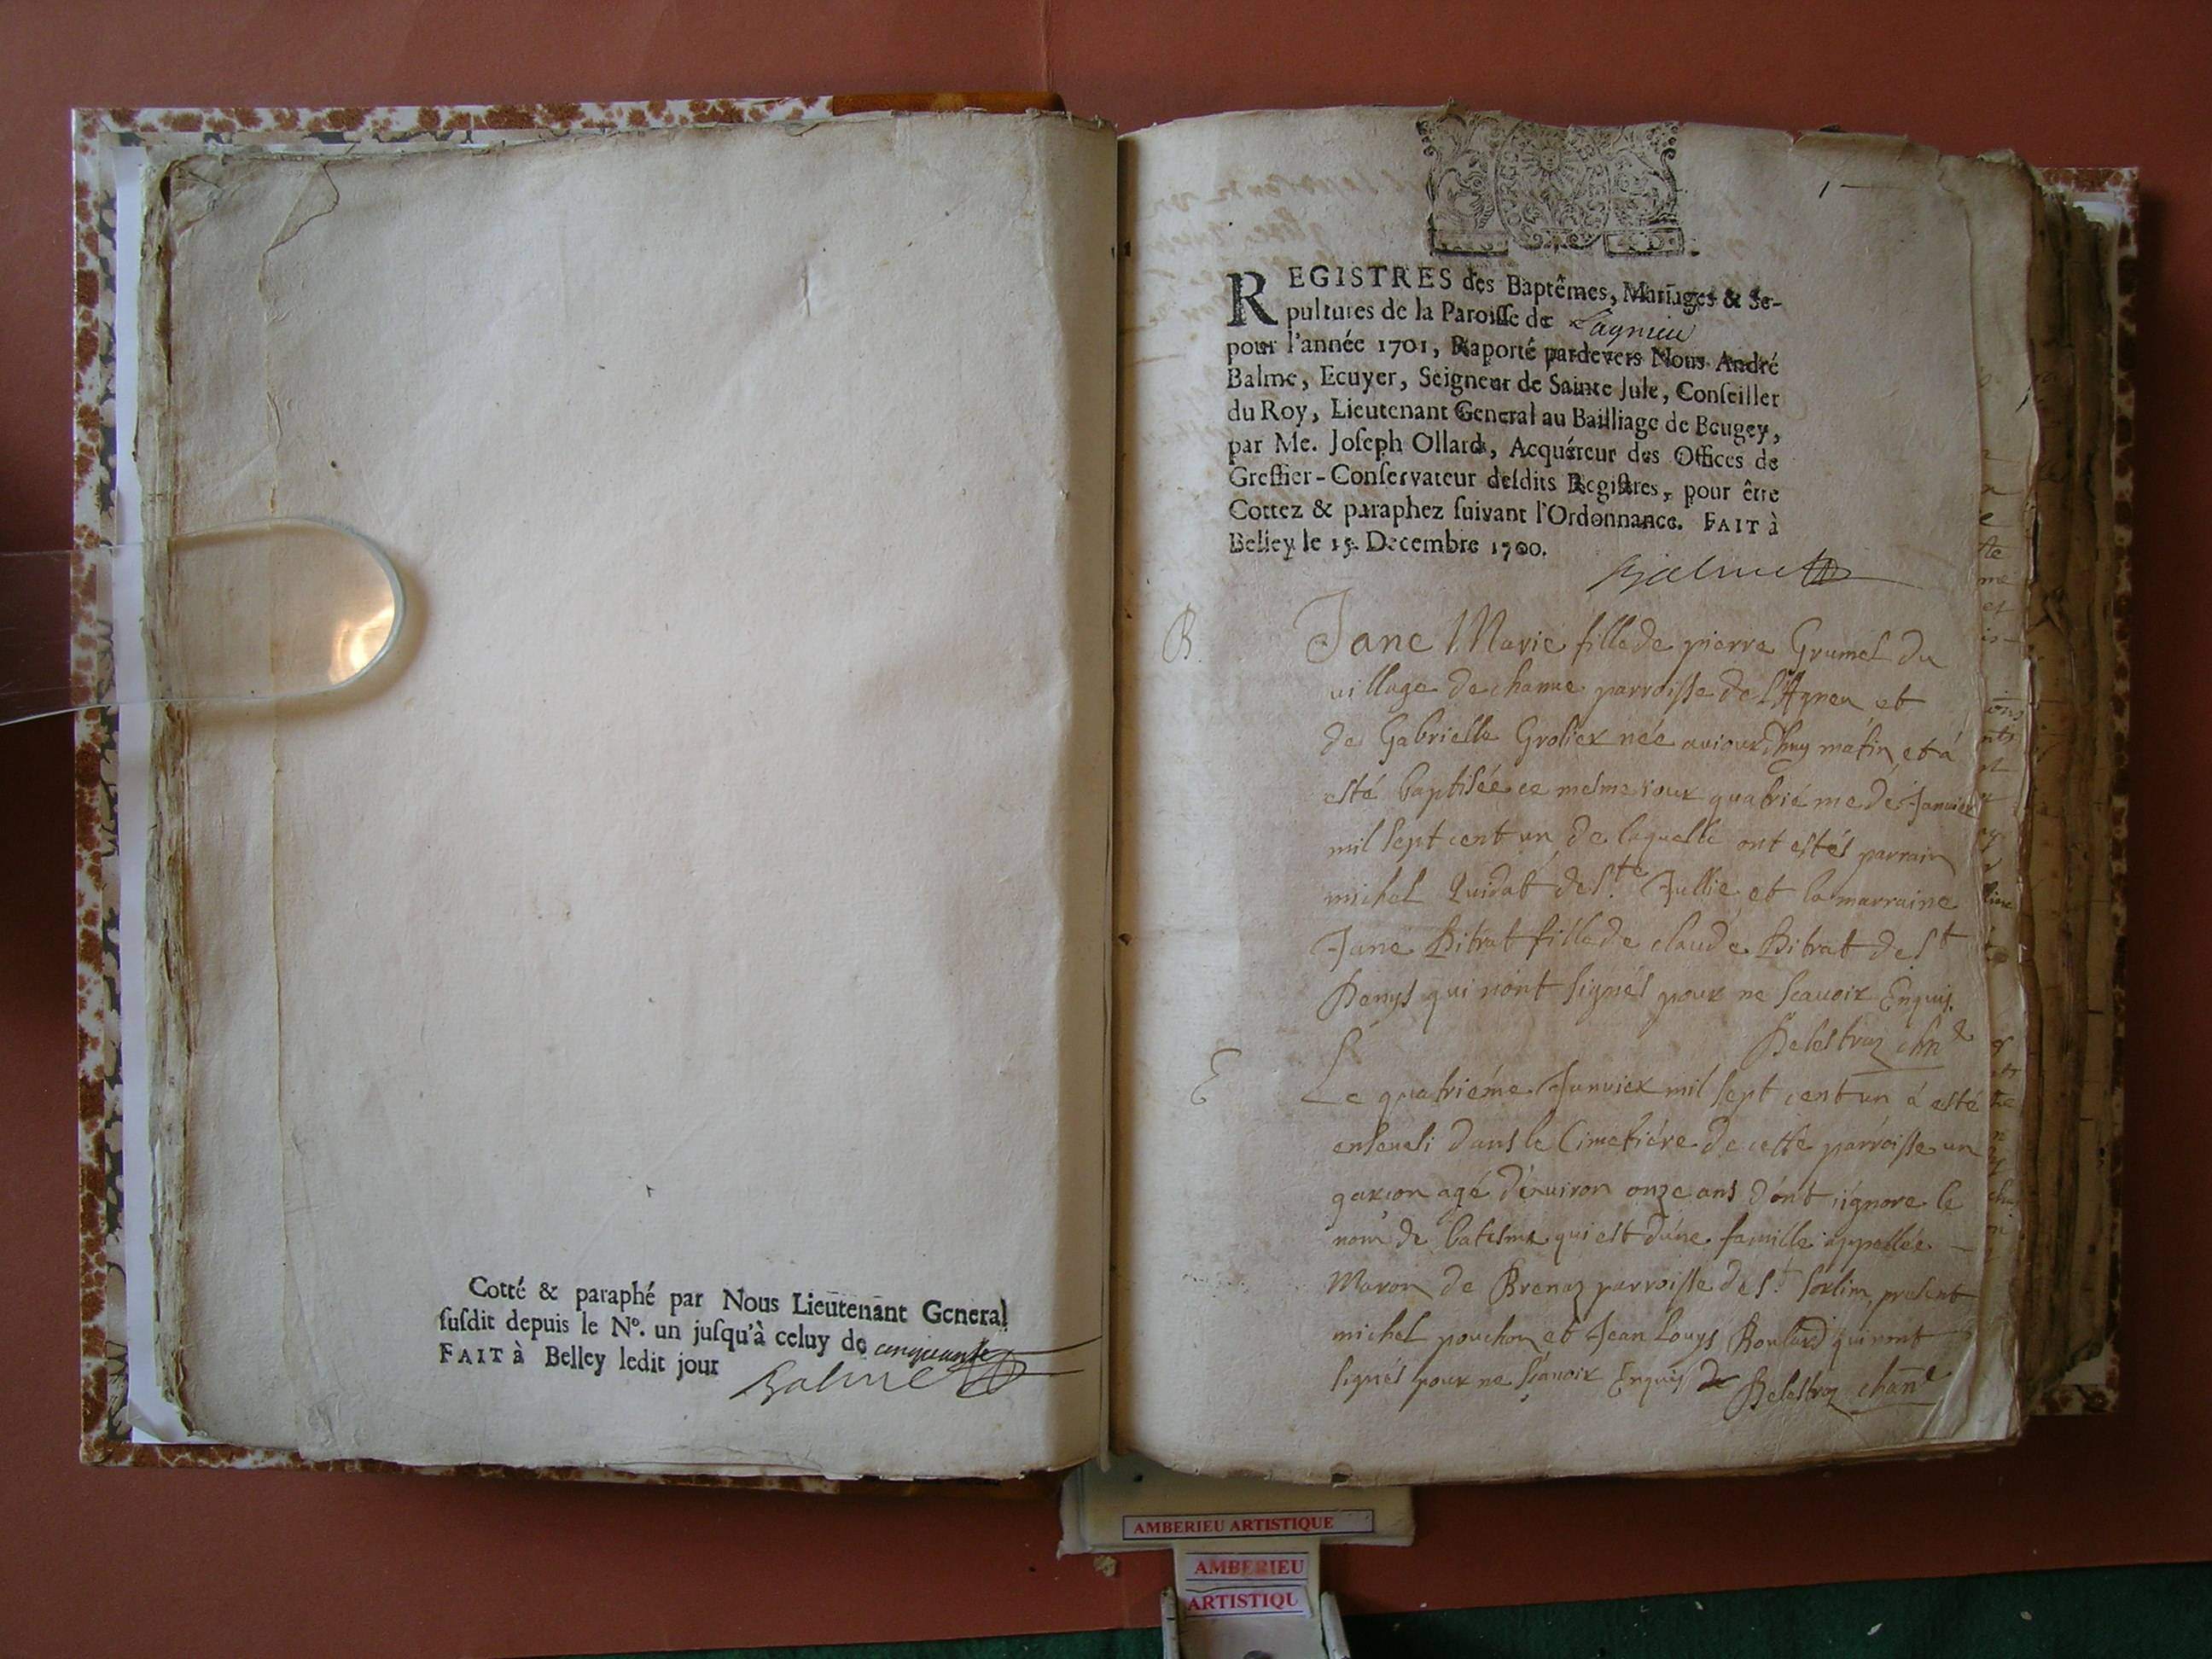 Cotté & paraphé par Nous Lieutenant General
susdit depuis le N°. un jusqu'à celuy de cinquante
FAIT à Belley ledit jour
Balme
1
REGISTRES des Baptêmes, Mariages & Se-
pultures de la Paroisse de Lagnieu
pour l'année 1701, Raporté pardevers Nous André
Balme, Ecuyer, Seigneur de Sainte Jule, Conseiller
du Roy, Lieutenant General au Bailliage de Beugey,
par Me. Joseph Ollard, Acquéreur des Offices de
Greffier-Conservateur desdits Registres, pour être
Cottez & paraphez suivant l'Ordonnance. FAIT à
Belley le 15. Decembre 1700.
Balme
B.
Jane Marie fille de pierre Grumel du
village de parroisse de et
de Gabrielle Grolier née auiourdhuy matin et à
esté baptisée ce mesme iour quatriéme de Januier
mil sept cent un de laquelle ont estés parrain
michel Quidat de Ste Jullie et la marraine
Jane Bitrat fille de claude Bitrat de St
Denys qui n'ont signés pour ne scauoir Enquis.
Delestraz
E
Le quatriéme Januier mil sept cent un à esté
enseueli dans le Cimetiére de cette parroisse un
garçon agé d'enuiron onze ans dont i'ignore le
nom de batesme qui est d'une famille appellée
Maron de Brenaz parroisse de St. Sorlin, present
michel pouchon et Jean Louys Boulard qui n'ont
signés pour ne scauoir Enquis Delestraz
AMBERIEU ARTISTIQUE
AMBERIEU
ARTISTIQU